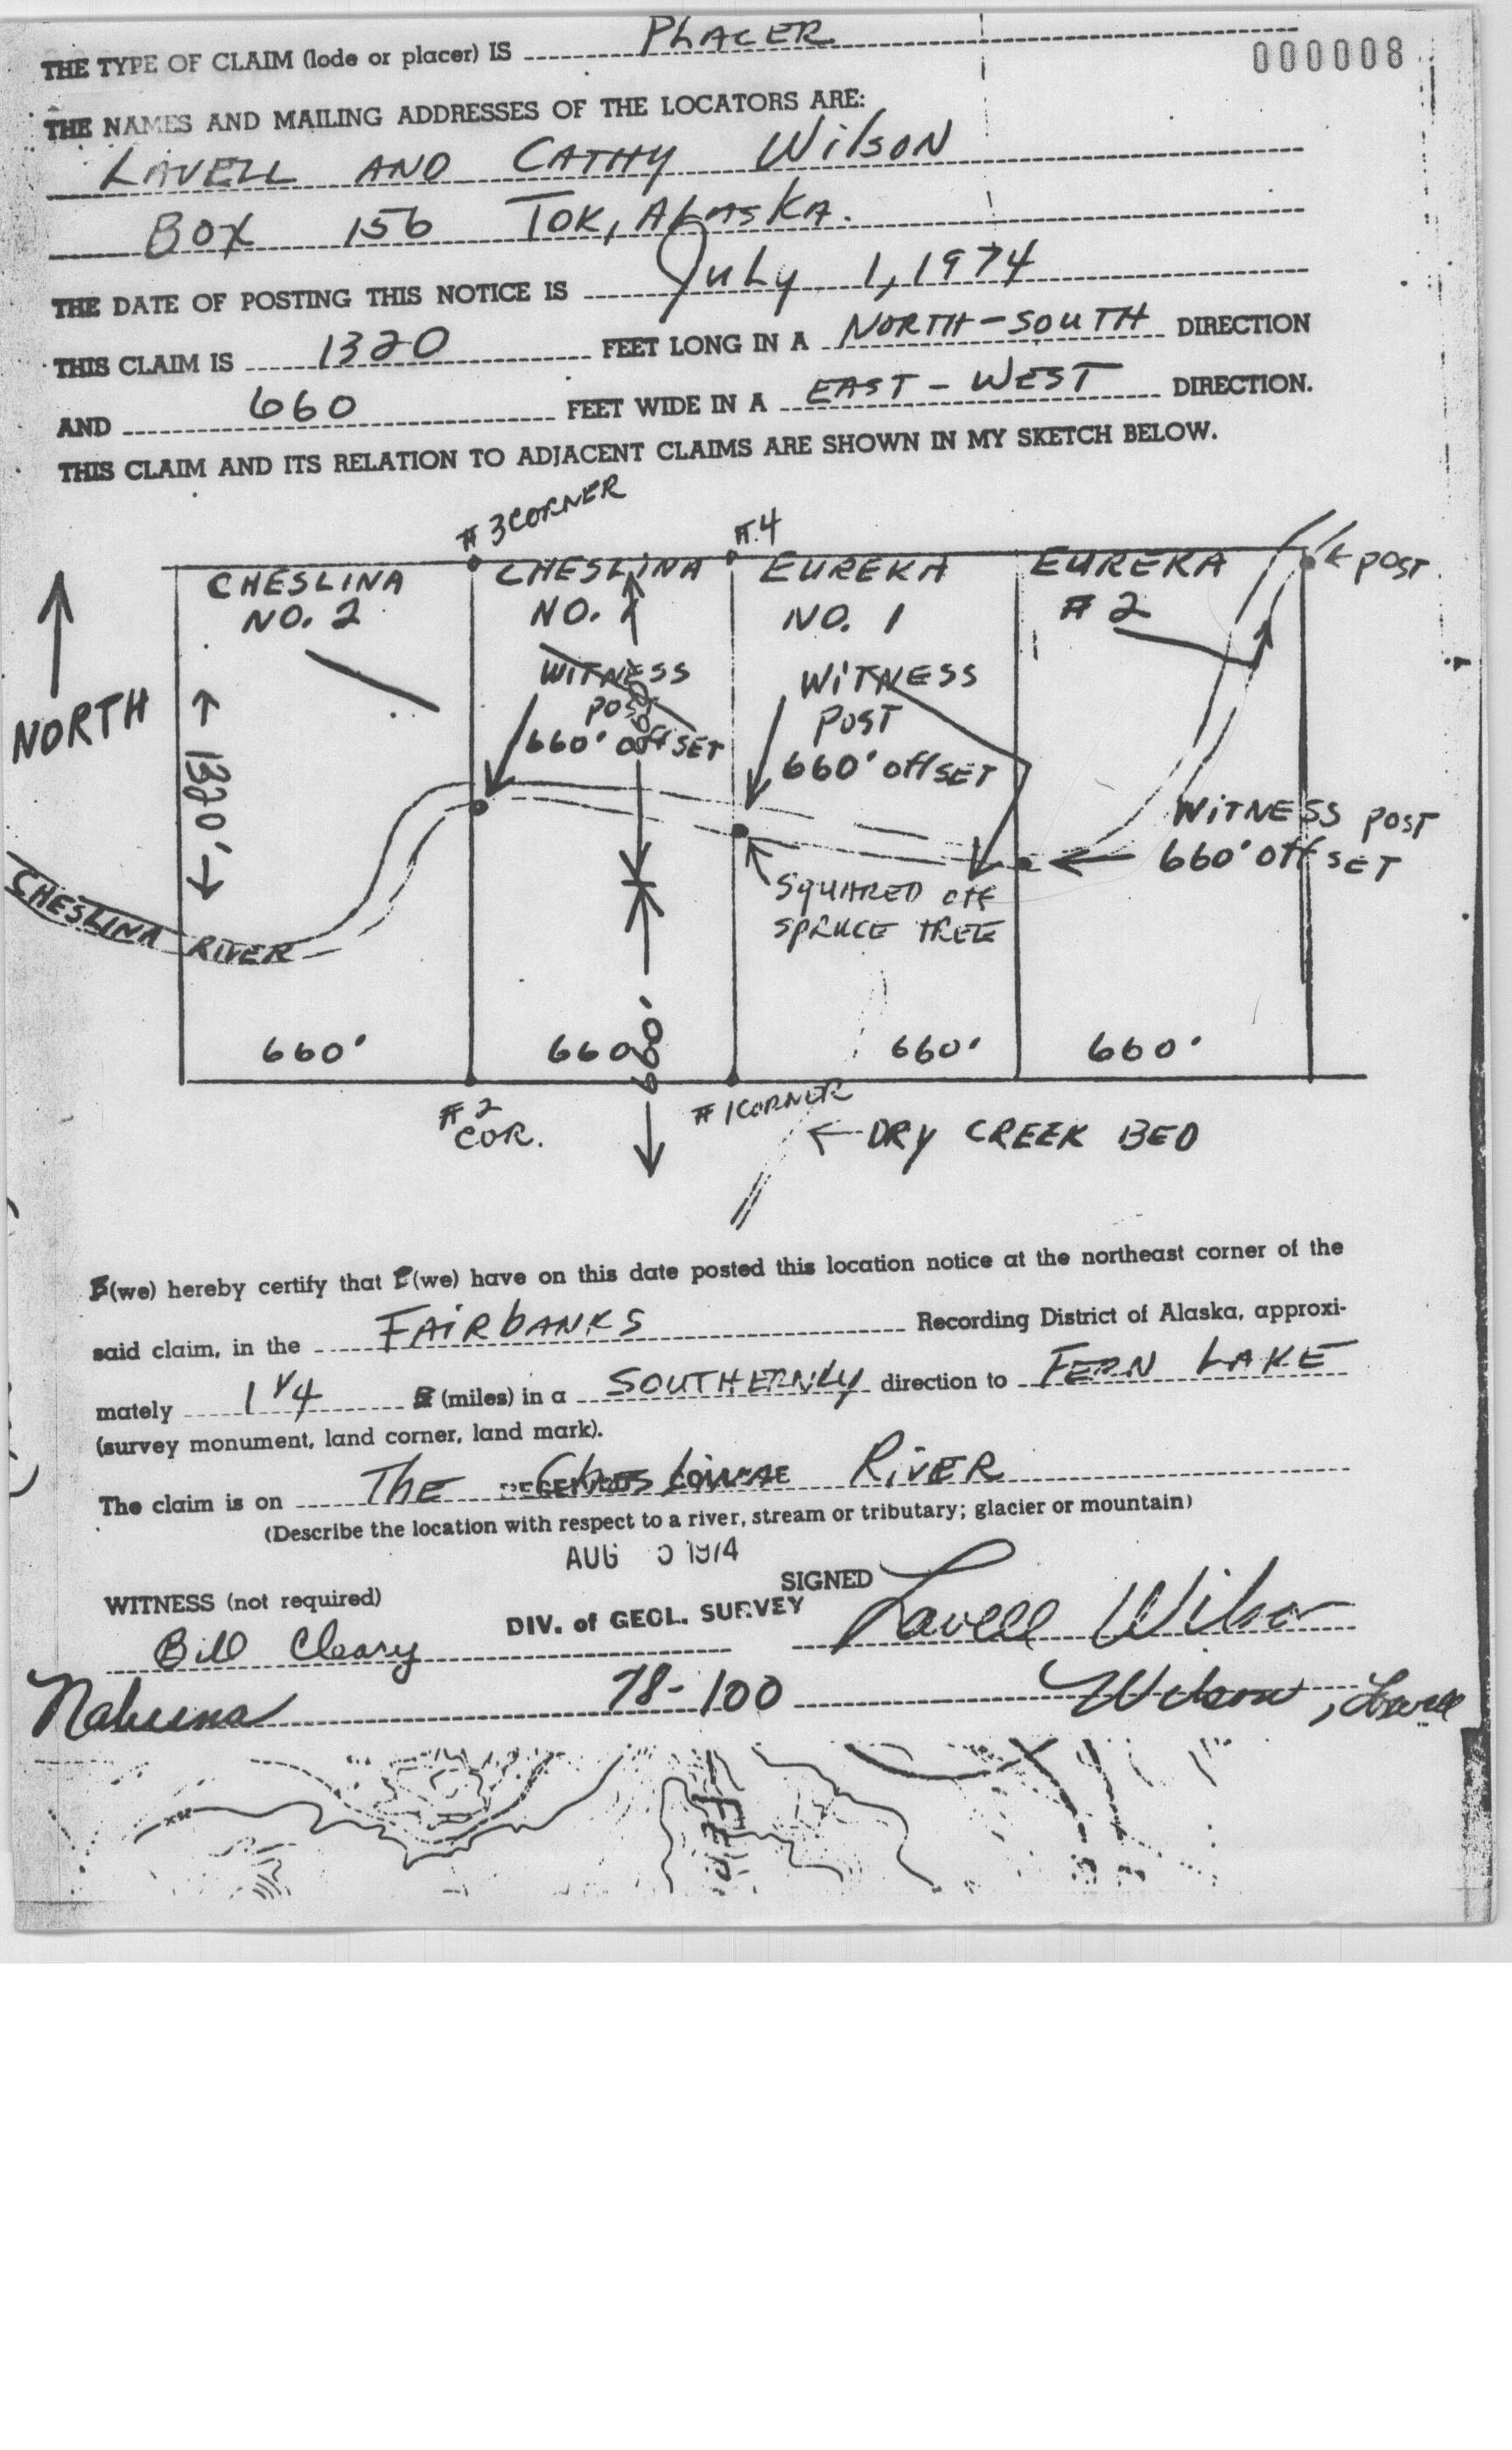 THE TYPE OF CLAIM (lode or placer) IS PLACER
000008
THE NAMES AND MAILING ADDRESSES OF THE LOCATORS ARE:
LAVELL AND CATHY WilsoN
BOX 156 TOK, ALASKA.
THE DATE OF POSTING THIS NOTICE IS July 1, 1974
THIS CLAIM IS 1320 FEET LONG IN A NORTH-SOUTH DIRECTION
AND 660 FEET WIDE IN A EAST-WEST DIRECTION.
THIS CLAIM AND ITS RELATION TO ADJACENT CLAIMS ARE SHOWN IN MY SKETCH BELOW.
# 3 CORNER
#4
CHESLINA NO. 2
CHESLINA NO. 1
EUREKA NO. 1
EUREKA # 2
POST
NORTH
1320'
WITNESS POST 660' OffSET
660'
WITNESS POST 660' OffSET
WITNESS POST 660' OffSET
SQUARED OFF SPRUCE TREE
CHESLINA RIVER
660'
660'
660'
660'
660'
#2 COR.
#1 CORNER
DRY CREEK BED
(we) hereby certify that (we) have on this date posted this location notice at the northeast corner of the
said claim, in the FAIRbANKS Recording District of Alaska, approxi-
mately 1 1/4 (miles) in a SOUTHERNLY direction to FERN LAKE
(survey monument, land corner, land mark).
The claim is on The Cheslina RIVER
(Describe the location with respect to a river, stream or tributary; glacier or mountain)
AUG 1974
WITNESS (not required)
SIGNED
DIV. of GEOL. SURVEY
Bill Cleary
Lavell Wilson
Nabesna 78-100 Wilson, Lavell